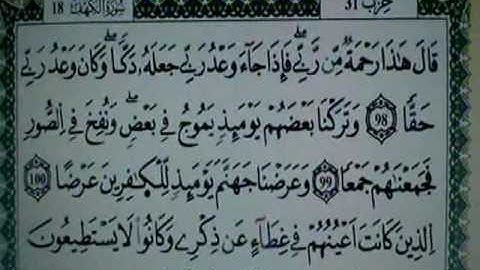 سُورَةُ الكَهْفِ 18
حِزْب 31
قَالَ هَٰذَا رَحْمَةٌ مِّن رَّبِّے فَإِذَا جَآءَ وَعْدُ رَبِّے جَعَلَهُۥ دَكّاً وَكَانَ وَعْدُ رَبِّے
حَقّاً 98 وَتَرَكْنَا بَعْضَهُمْ يَوْمَئِذٍ يَمُوجُ فِے بَعْضٍ وَنُفِخَ فِے اِلصُّورِ
فَجَمَعْنَٰهُمْ جَمْعاً 99 وَعَرَضْنَا جَهَنَّمَ يَوْمَئِذٍ لِّلْكَٰفِرِينَ عَرْضاً 100
اِلذِينَ كَانَتَ اَعْيُنُهُمْ فِے غِطَآءٍ عَن ذِكْرِے وَكَانُواْ لَا يَسْتَطِيعُونَ